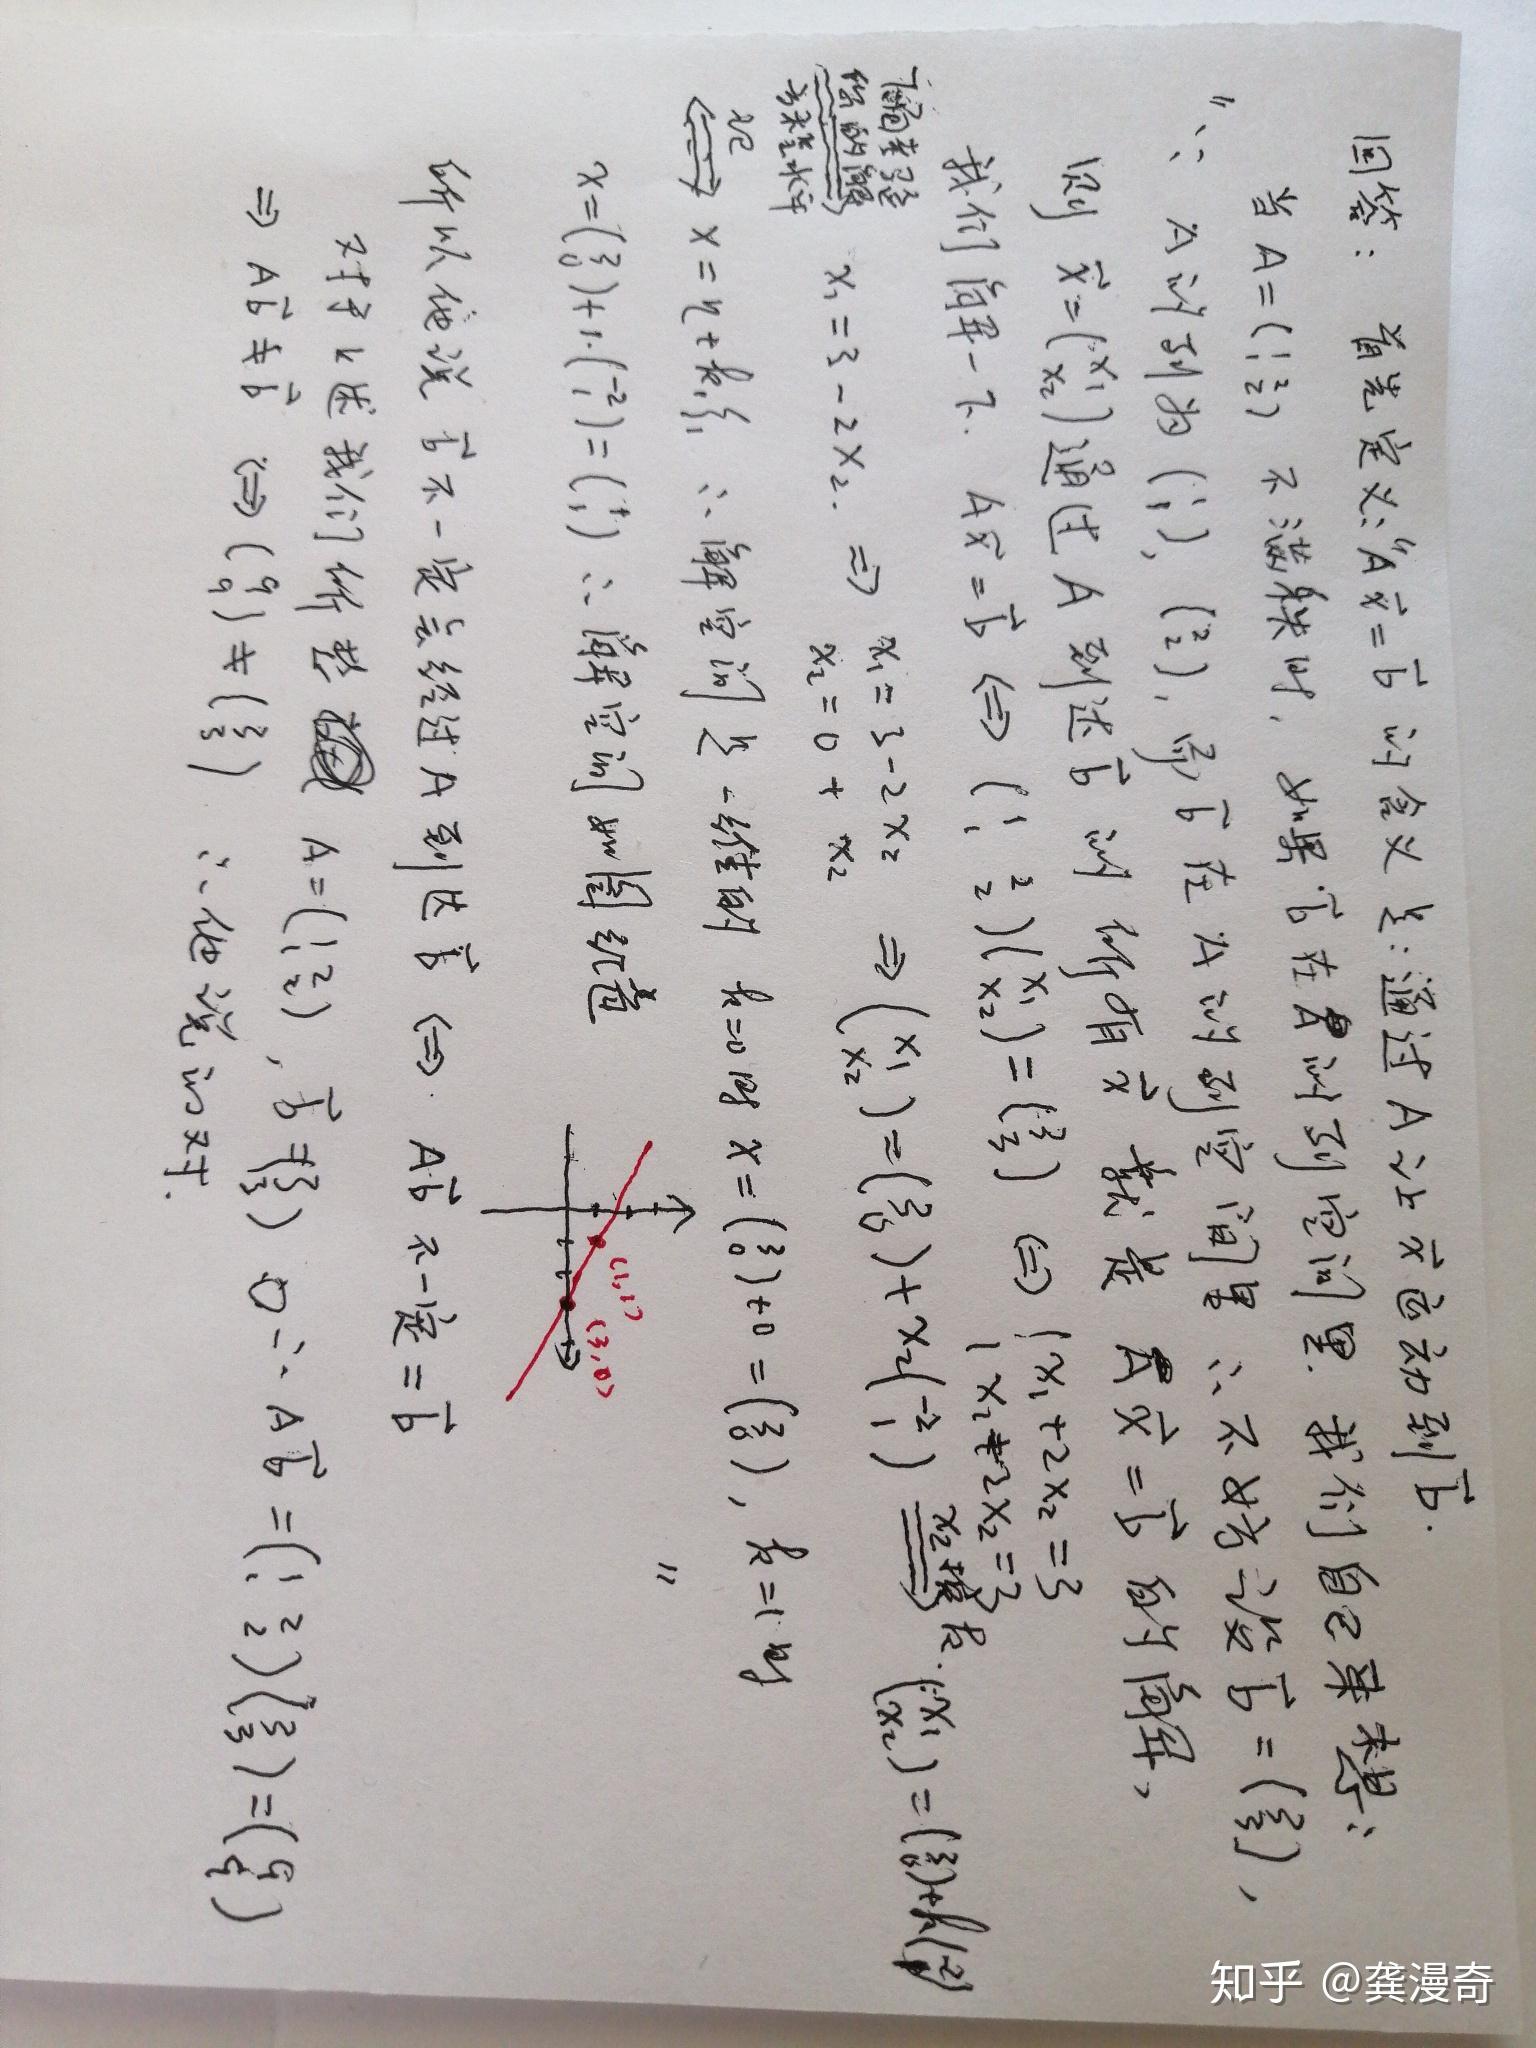 回答: 首先定义:"Ax⃗=b⃗ 的含义是:通过A让x⃗运动到b⃗.
当A=(1 2; 1 2) 不满秩时, 如果b⃗在A的列空间里. 我们自己来带:
"∵ A的列为(1; 1), (2; 2), 而b⃗在A的列空间里 ∴不妨设b⃗=(3; 3),
则x⃗=(x₁; x₂)通过A到达b⃗的所有x⃗ 就是 Ax⃗=b⃗的解,
我们解一下. Ax⃗=b⃗ ⇔ (1 2; 1 2)(x₁; x₂)=(3; 3) ⇔ {x₁+2x₂=3
x₁+2x₂=3
x₁=3-2x₂. ⇒ x₁=3-2x₂
x₂=0+x₂ ⇒ (x₁; x₂)=(3; 0)+x₂(-2; 1) x₂换成k. (x₁; x₂)=(3; 0)+k(-2; 1)
记 ⇔ x=η+kξ₁ ∴解空间是一维的 k=0时 x=(3; 0)+0=(3; 0), k=1时
x=(3; 0)+1·(-2; 1)=(1; 1) ∴解空间如图红色 "
(1,1)
(3,0)
所以他说b⃗不一定会经过A到达b⃗ ⇔ Ab⃗不一定=b⃗
对于上述我们所带 A=(1 2; 1 2), b⃗=(3; 3) ∵ Ab⃗=(1 2; 1 2)(3; 3)=(9; 9)
⇒ Ab⃗≠b⃗ ⇔ (9; 9)≠(3; 3) ∴他说的对.
知乎 @龚漫奇